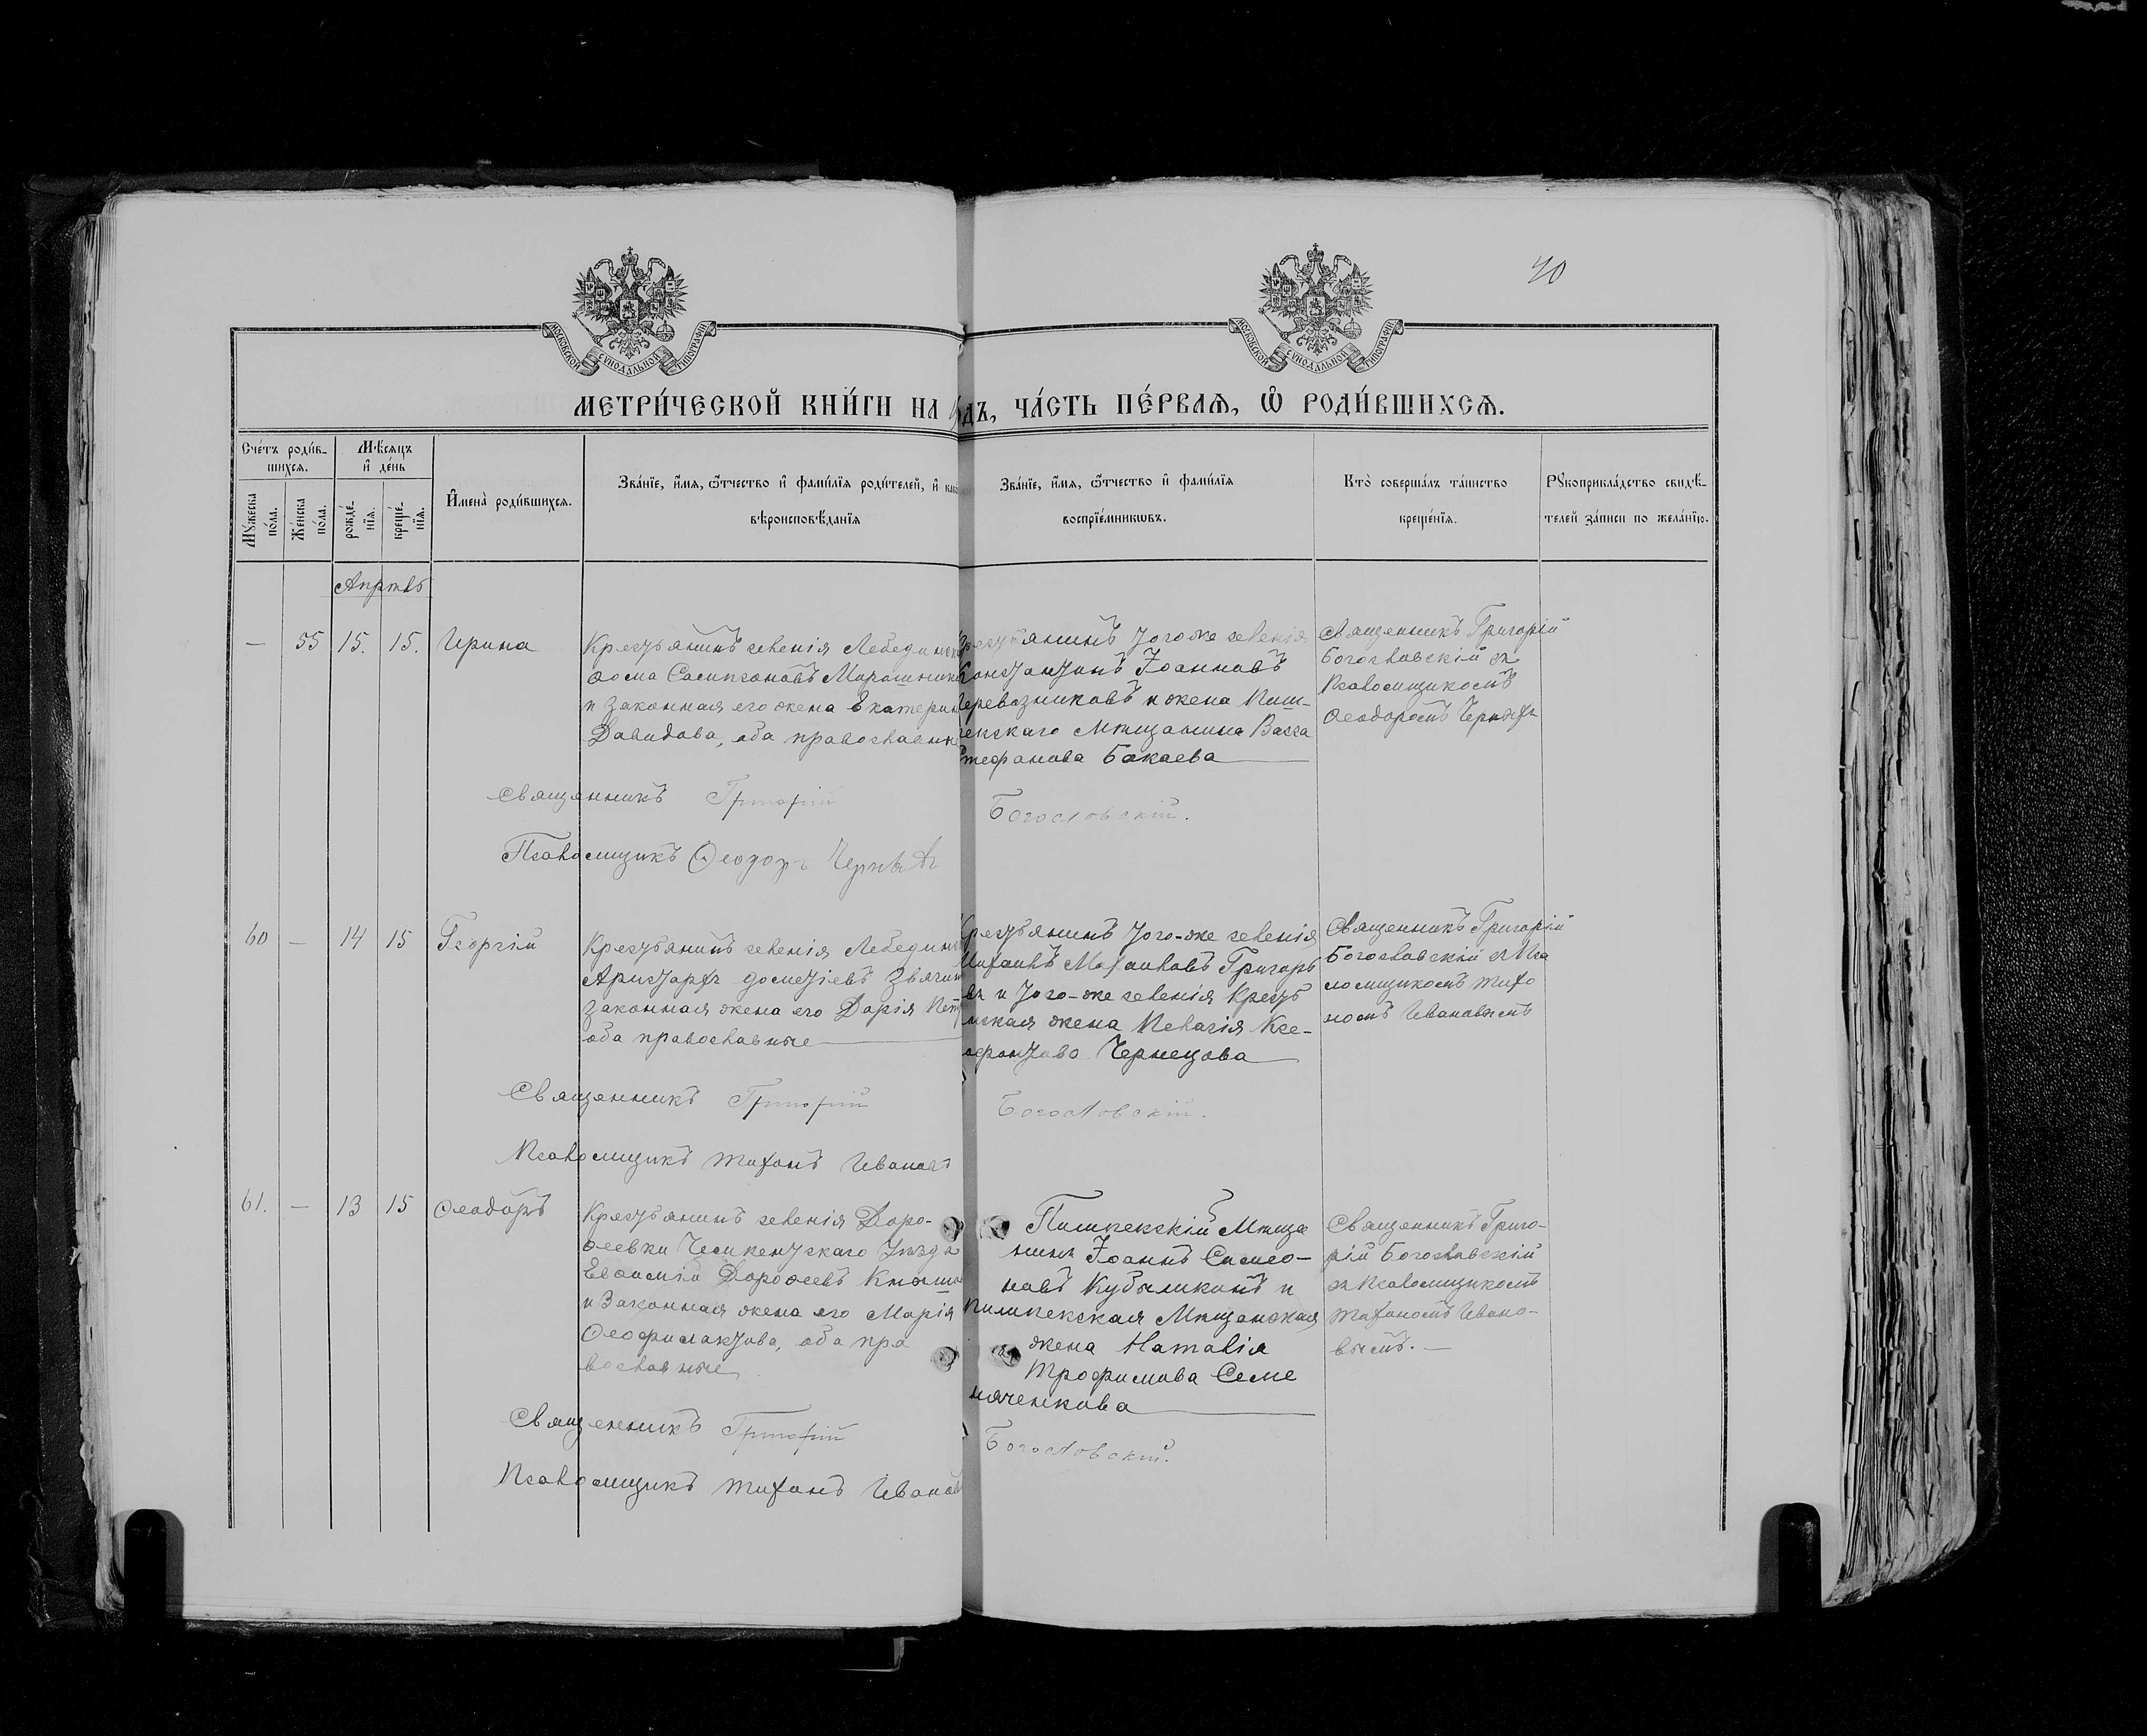 40
МОСКОВСКОЙ СѴНОДАЛЬНОЙ ТИПОГРАФІИ
МОСКОВСКОЙ СѴНОДАЛЬНОЙ ТИПОГРАФІИ
МЕТРИ́ЧЕСКОЙ КНИ́ГИ НА дъ, ЧА́СТЬ ПЕ́РВАѦ, Ѿ РОДИ́ВШИХСѦ.
Сче́тъ роди́в-
шихсѧ.
Мѣ́сѧцъ
и҆ де́нь
Мꙋжеска по́ла.
Же́нска по́ла.
рожде́-
нїѧ.
креще́-
нїѧ.
И҆мена̀ роди́вшихсѧ.
Зва́нїе, и҆́мѧ, ѻ҆́тчество и҆ фами́лїѧ роди́телей, и҆
вѣроисповѣ́данїѧ
Зва́нїе, и҆́мѧ, ѻ҆́тчество и҆ фами́лїѧ
воспрїе́мникѡвъ.
Кто̀ соверша́лъ та́инство
креще́нїѧ.
Рꙋкоприкла́дство свидѣ́-
телей за́писи по жела́нїю.
Апрѣль
— 55 15. 15. Ирина
Крестьянинъ селенія
Ѳома Сампсоновъ
и законная его жена
Давидова, оба
Крестьянинъ того же селенія
Константинъ Іоанновъ
Перевозниковъ и жена Пиш-
пекскаго мѣщанина Васса
Стефанова Бакаева
Священникъ Григорій
Богословскій съ
Псаломщикомъ
Ѳеодоромъ
Священникъ Григорій Богословскій.
Псаломщикъ Ѳеодоръ
60 — 14 15 Георгій
Крестьянинъ селенія
Аристархъ Дометіевъ
законная жена его Дарія
оба православные
Крестьянинъ того-же селенія
Михаилъ Михаиловъ Григорь
въ и того-же селенія Крест
жена Пелагія Ксе-
нофонтова Чернецова
Священникъ Григорій
Богословскій съ Пса
ломщикомъ Тихо
номъ Ивановымъ
Священникъ Григорій Богословскій.
Псаломщикъ Тихонъ Ивановъ
61. — 13 15 Ѳеодоръ
Крестьянинъ селенія Доро-
ѳеевки Чемкентскаго Уѣзда
Евѳимій Дороѳеевъ
и Законная жена его Марія
Ѳеофилактова, оба пра
вославные
Пишпекскій Мѣща
нинъ Іоаннъ Симео-
новъ и
пишпекская Мѣщанская
жена Наталія
Трофимова Семе
няченкова
Священникъ Григо-
рій Богословскій
съ Псаломщикомъ
Тихономъ Ивано-
вымъ. —
Священникъ Григорій Богословскій.
Псаломщикъ Тихонъ